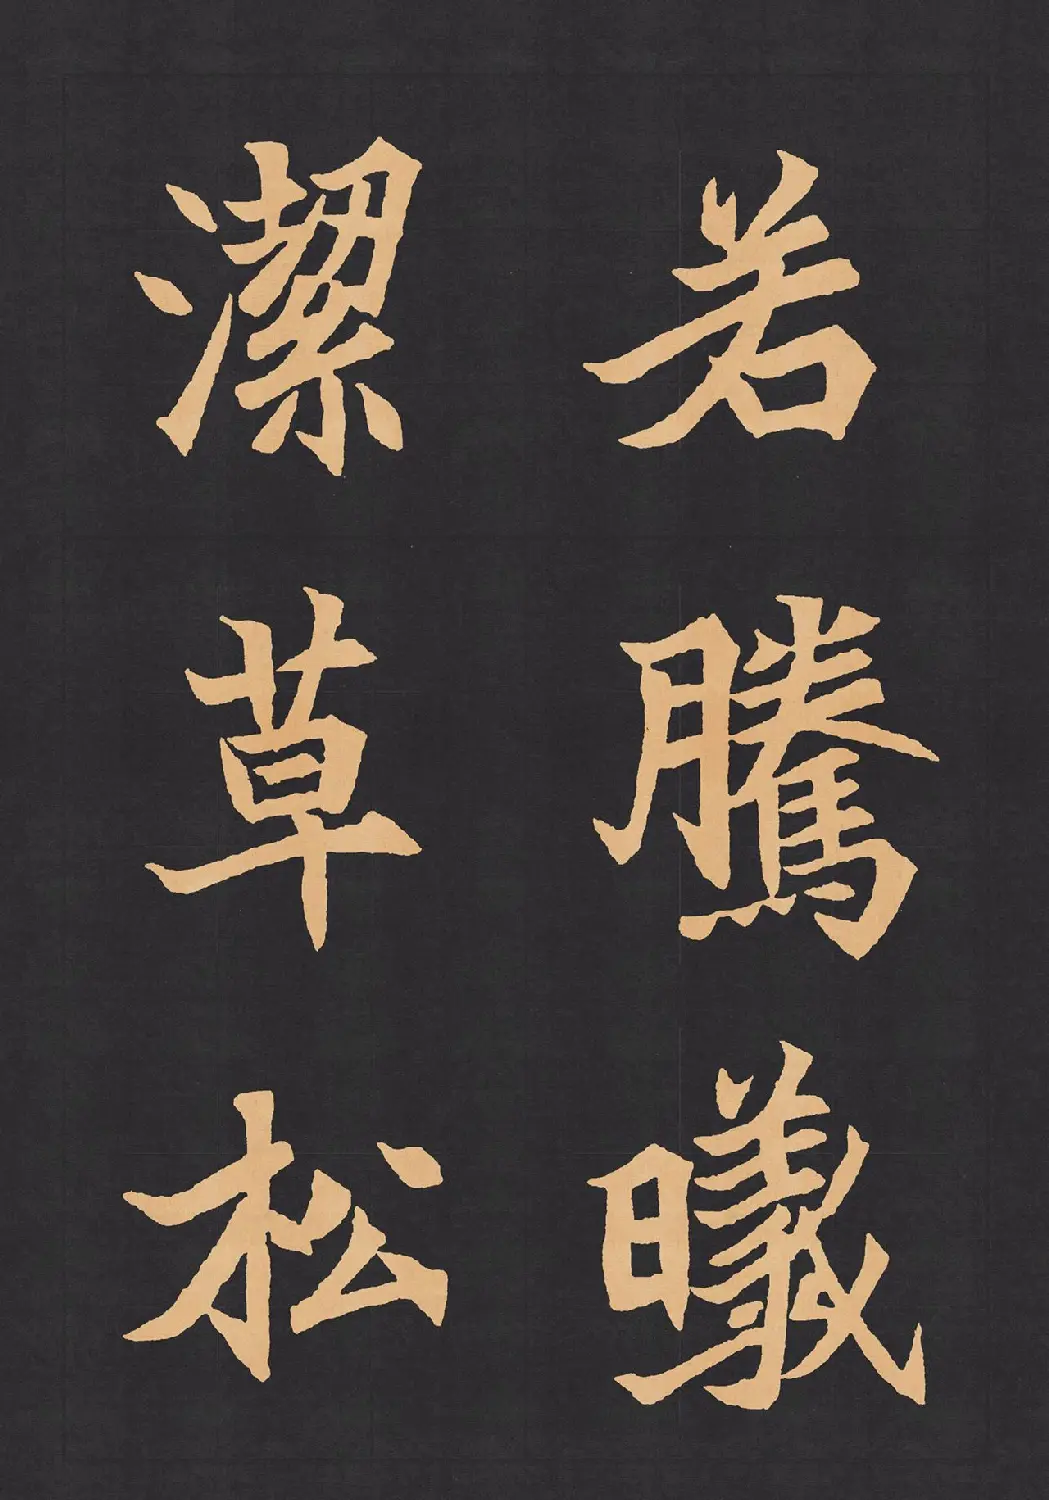 若騰曦
潔草松